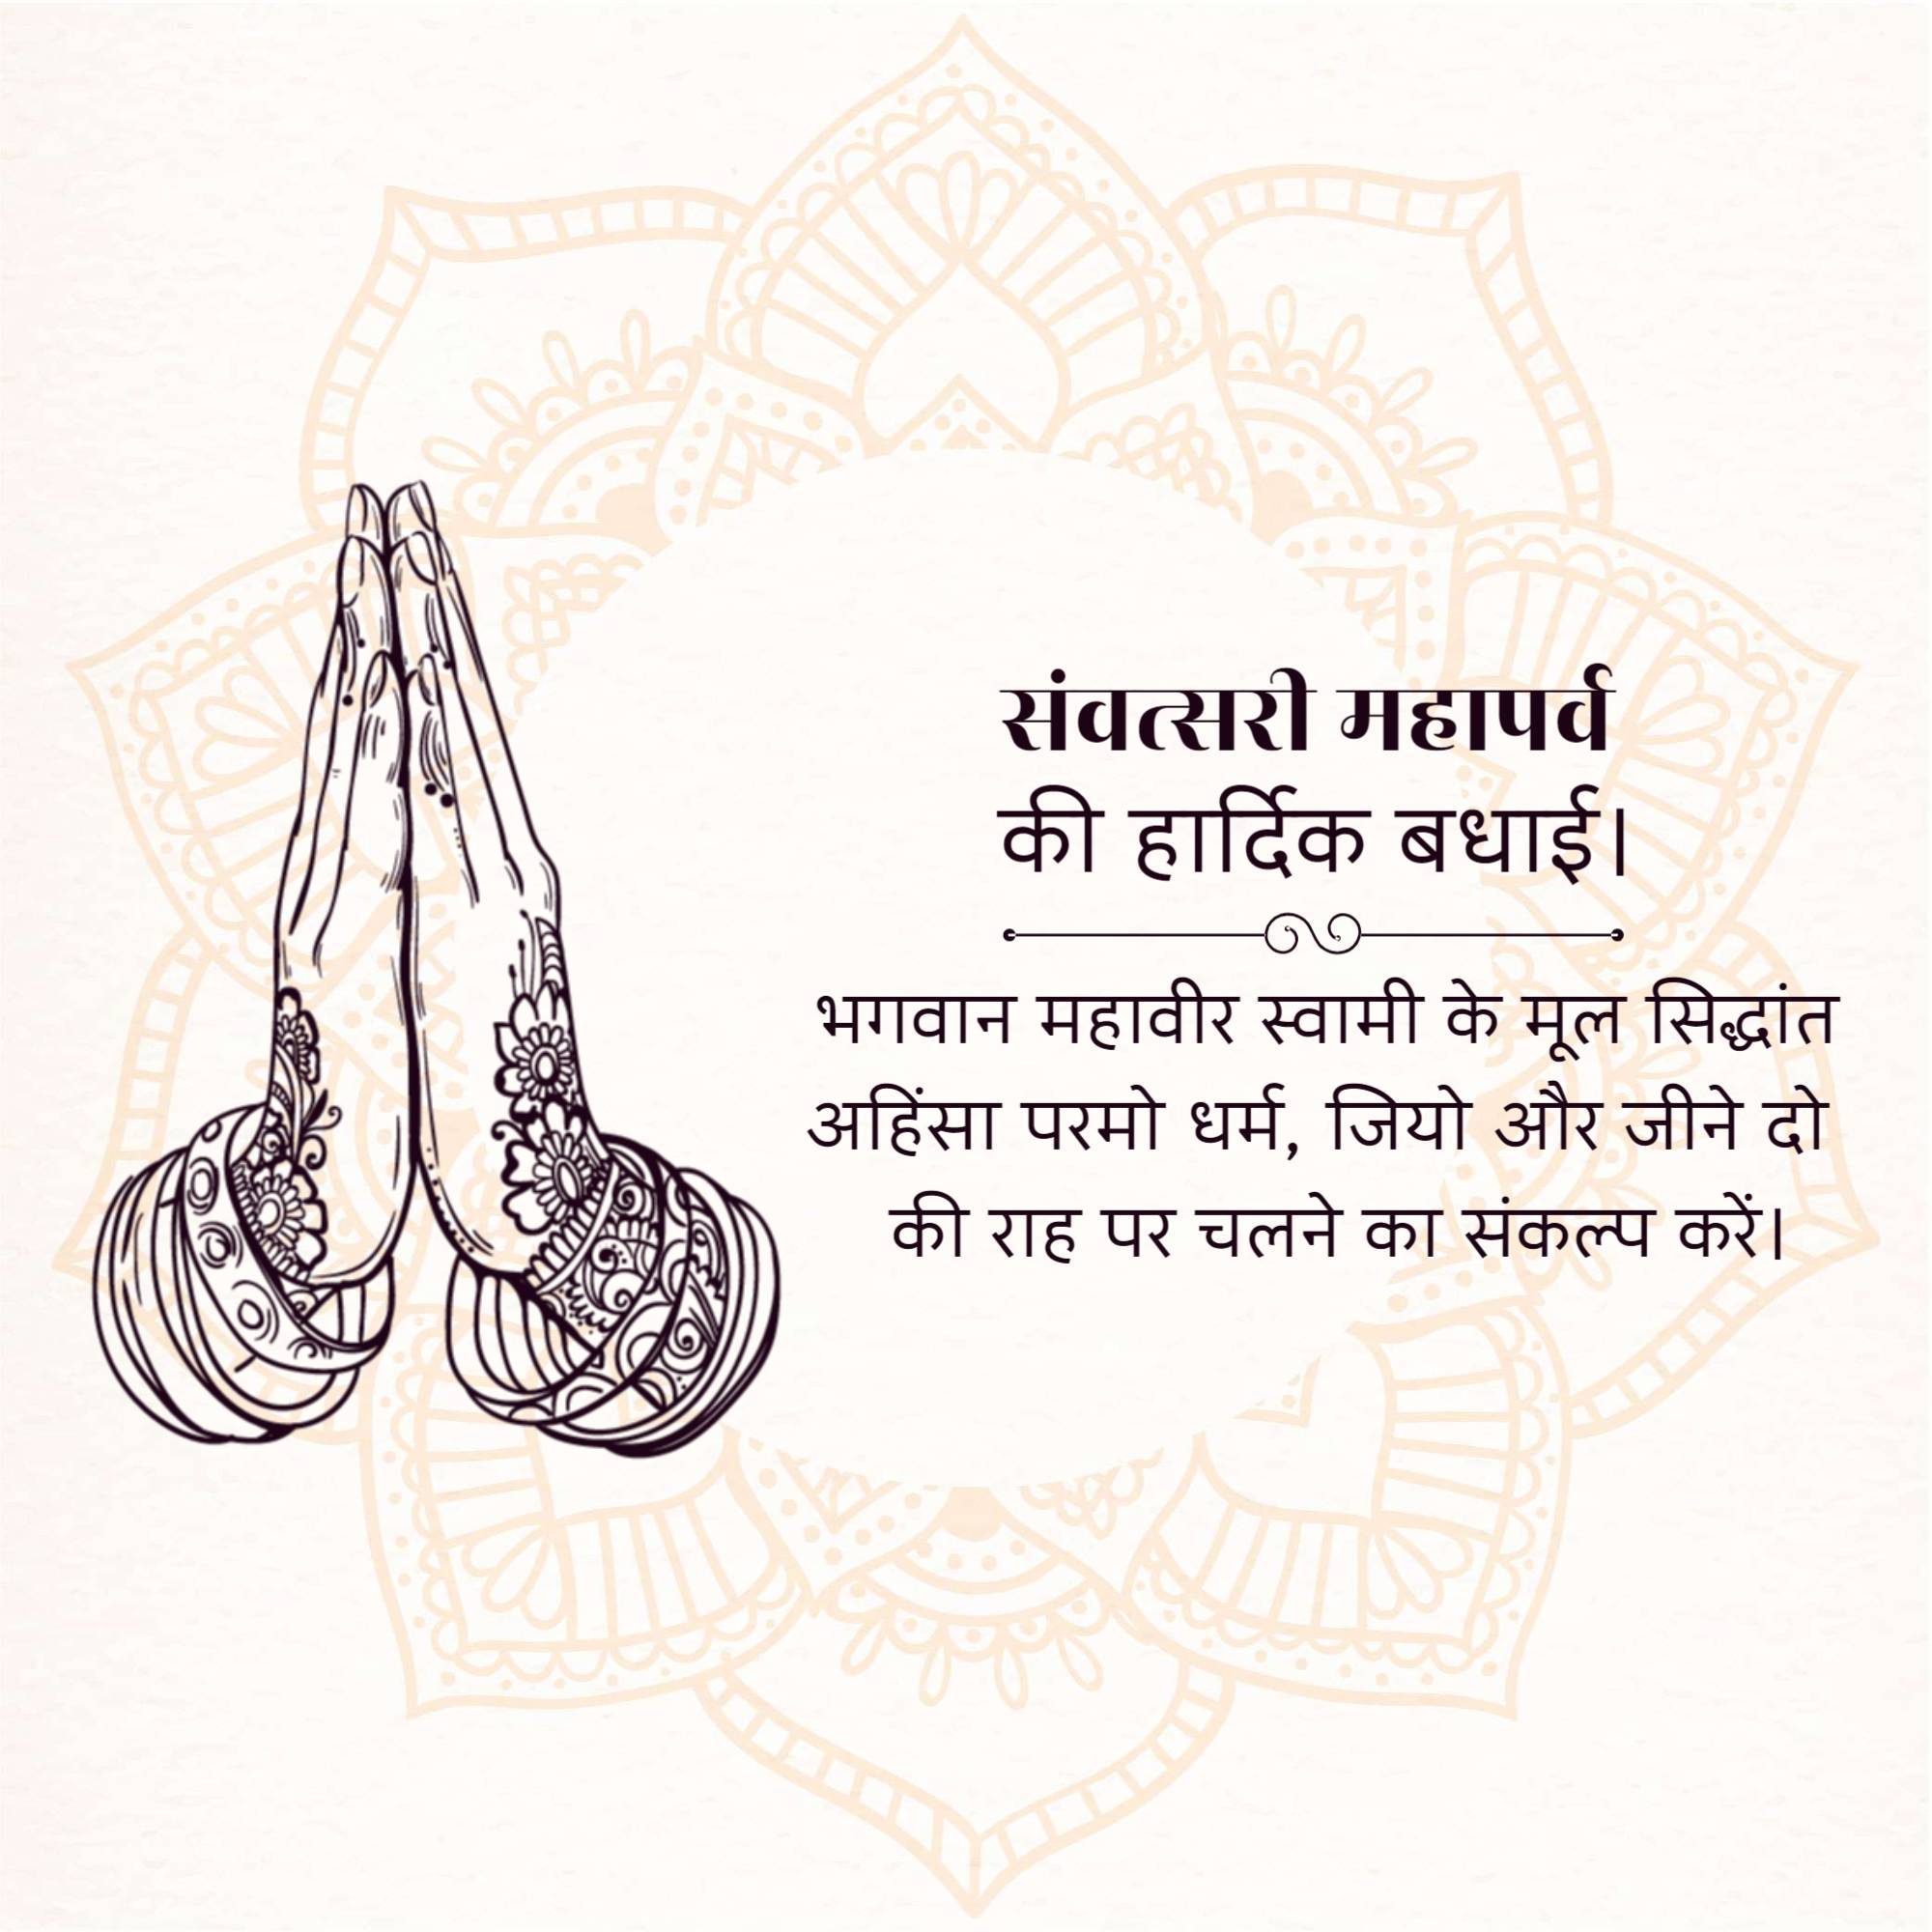 संवत्सरी महापर्व
की हार्दिक बधाई।
भगवान महावीर स्वामी के मूल सिद्धांत
अहिंसा परमो धर्म, जियो और जीने दो
की राह पर चलने का संकल्प करें।